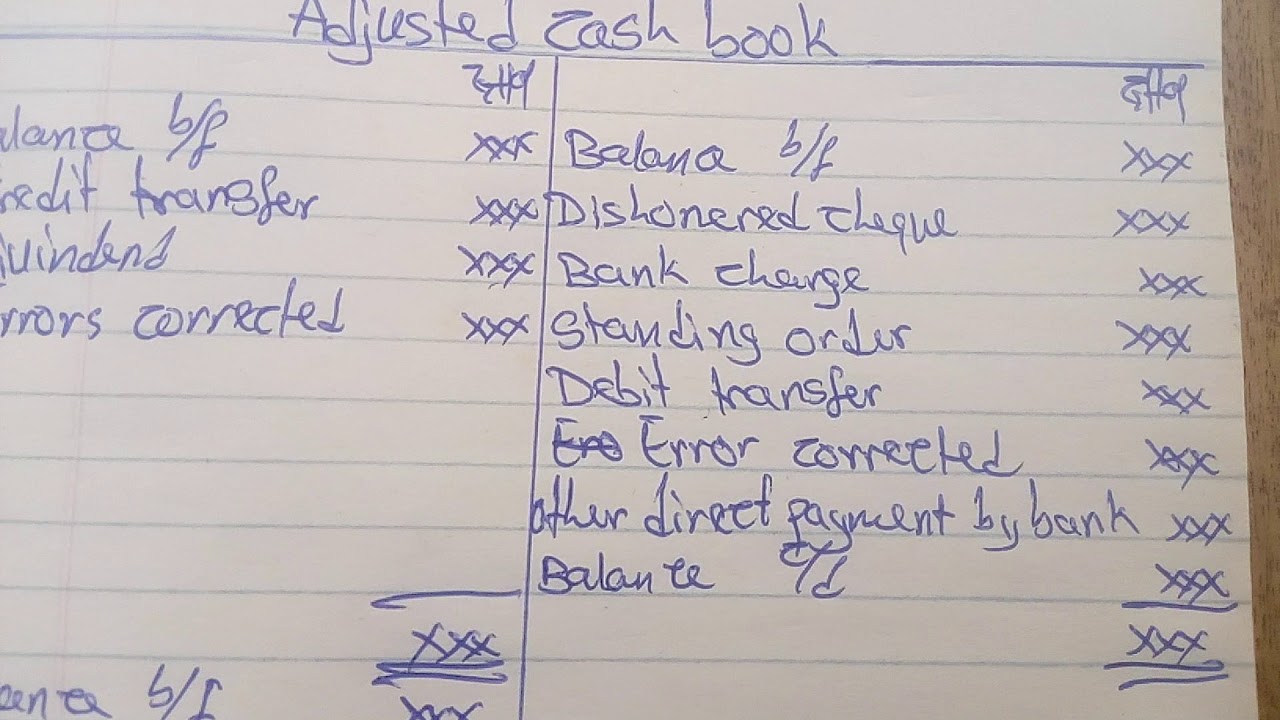 Adjusted cash book
alance b/f xxx Balance b/f xxx
redit transfer xxx Dishonered cheque xxx
ivindend xxx Bank charge xxx
rrors corrected xxx Standing order xxx
Debit transfer xxx
Error corrected xxx
other direct payment by bank xxx
Balance c/d xxx
xxx xxx
ance b/f xxx